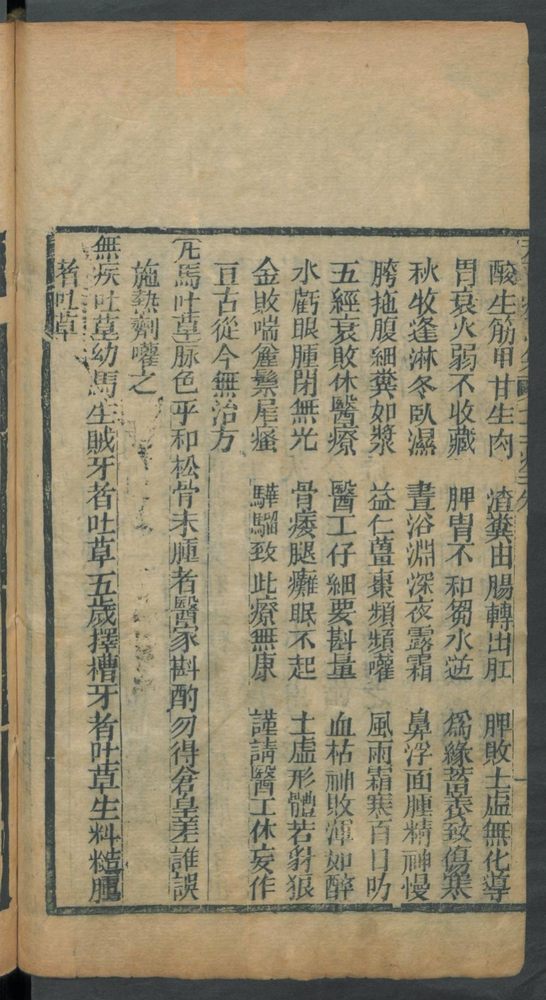 酸生筋甲甘生肉 渣糞由腸轉出肛 脾敗土虛無化導
胃衰火弱不收藏 脾胃不和芻水逆 爲緣蓄養致傷寒
秋牧逢淋冬臥濕 晝浴淵深夜露霜 鼻浮面腫精神慢
胯拖腹細糞如漿 益仁薑棗頻頻嚾 風雨霜寒百日昉
五經衰敗休醫療 醫工仔細要斟量 血枯神敗渾如醉
水虧眼腫閉無光 骨痿腿癱眠不起 土虛形體若豺狼
金敗喘麄欒尾瘙 驊騮致此療無康 謹請醫工休妄作
亘古從今無治方
凡馬吐草脉色平和松骨未腫者醫家斟酌勿得倉皇差誰誤
施熱劑嚾之
無疾吐草幼馬生賊牙者吐草五歲擇槽牙者吐草生料糙腫
者吐草